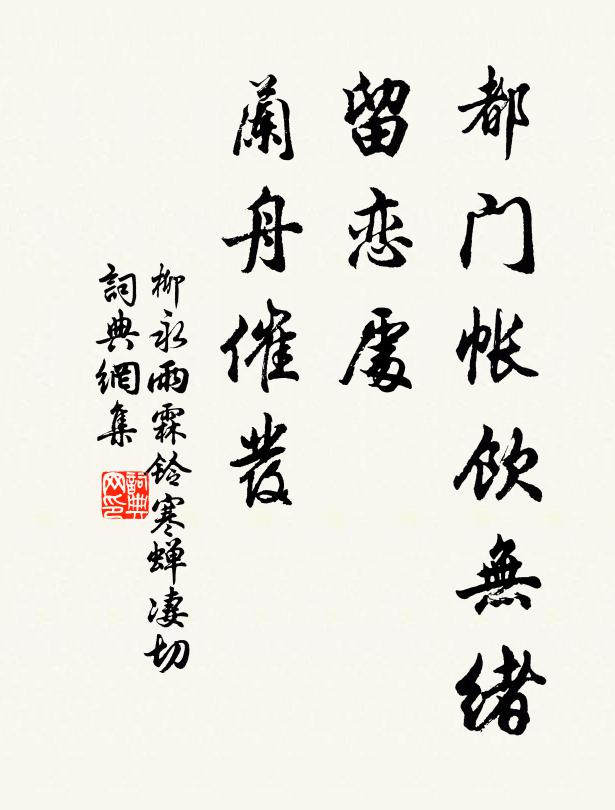 都门帐飲無緒
留恋處
蘭舟催發
柳永雨霖铃寒蝉凄切
詞典網集
詞典网印